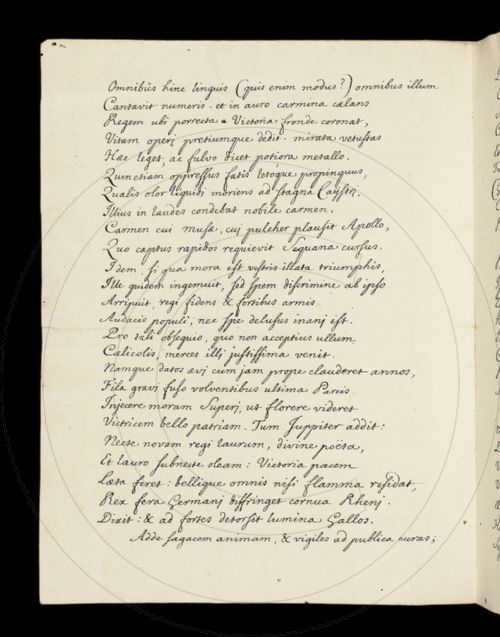 Omnibus hinc linguis (quis enim modus?) omnibus illum
Cantavit numeris. et in auro carmina cælans
Regem ubi porrecta Victoria fronde coronat,
Vitam operi pretiumque dedit. mirata vetustas
Hæc leget, ac fulvo dicet potiora metallo.
Quinetiam oppressus fatis letoque propinquus,
Qualis olor liquidi moriens ad stagna Caystri,
Illius in laudes condebat nobile carmen.
Carmen cui musa, cuj pulcher plausit Apollo,
Quo captus rapidos requievit Sequana cursus.
Idem, si qua mora est vestris illata triumphis,
Ille quidem ingemuit, sed spem discrimine ab ipso
Arripuit regi fidens & fortibus armis
Audacis populi, nec spe delusus inanj est.
Pro tali obsequio, quo non acceptius ullum
Cælicolis, merces illj justissima venit.
Namque datos ævj cum jam prope clauderet annos,
Fila gravj fuso volventibus ultima Parcis
Injecere moram Superj, ut florere videret
Victricem bello patriam. Tum Juppiter addit:
Necte novam regi laurum, divine poëta,
Et lauro subnecte oleam: Victoria pacem
Læta feret: bellique omnis nisi flamma residat,
Rex fera Germanj diffringet cornua Rhenj.
Dixit: & ad fortes detorsit lumina Gallos.
Adde sagacem animam, & vigiles ad publica curas;